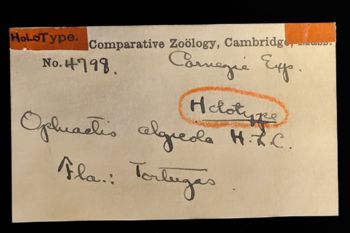 HOLOTYPE.
Comparative Zoölogy, Cambridge, Mass.
No. 4798. Carnegie Exp.
Holotype
Ophiactis algicola H.L.C.
Fla.: Tortugas.